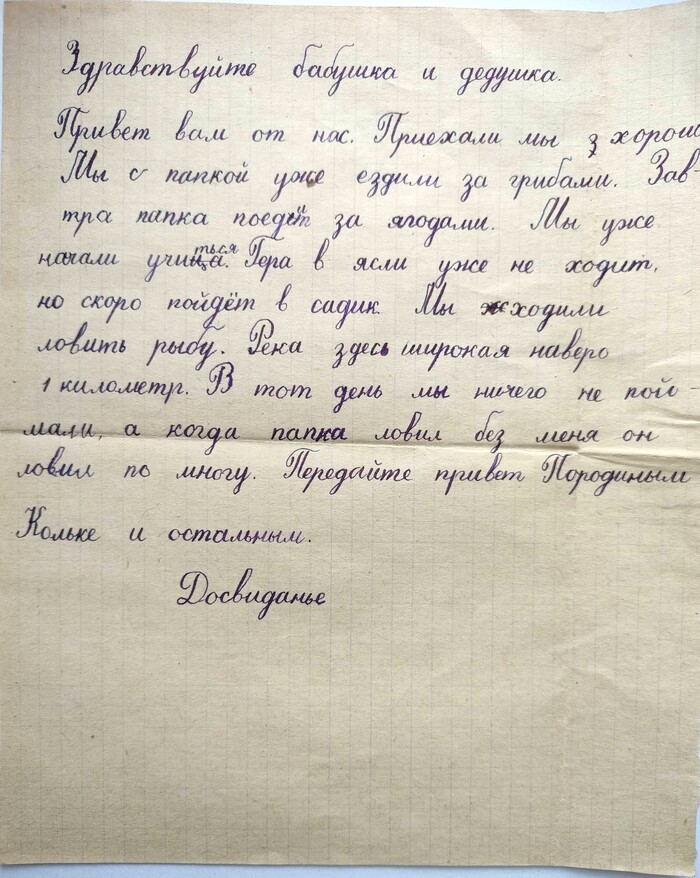 Здравствуйте бабушка и дедушка.
Привет вам от нас. Приехали мы хорошо
Мы с папкой уже ездили за грибами. Зав-
тра папка поедит за ягодами. Мы уже
начали учиться. Гера в ясли уже не ходит,
но скоро пойдёт в садик. Мы ходили
ловить рыбу. Река здесь широкая наверо
1 километр. В тот день мы ничего не пой-
мали, а когда папка ловил без меня он
ловил по многу. Передайте привет Породиным
Кольке и остальным.
Досвиданье